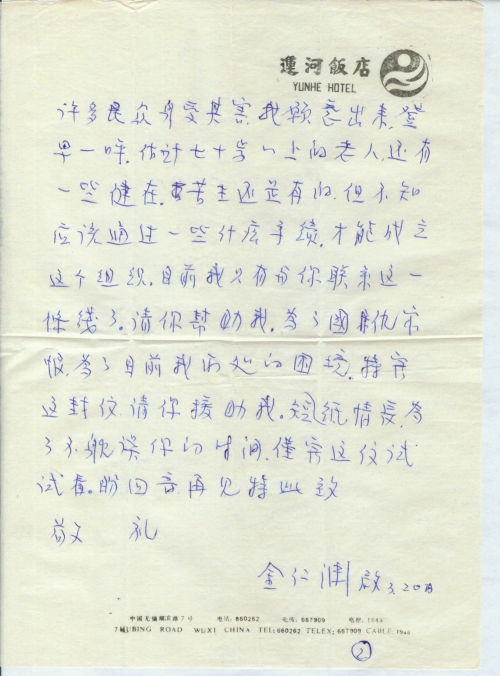 運河飯店
YUNHE HOTEL
许多民众身受其害,我願意出来,登
早一呼,估计七十岁以上的老人,还有
一些健在,苦主还是有的,但不知
应该通过一些什么手续,才能成立
这个组织,目前我只有份你联来这一
条线了。请你幫助我,為了國仇家
恨,為了目前我所处的困境,特寄
这封信,请你援助我。短纸情長,為
了不耽误你的时间,僅寄这信试
试看。盼回音再见特此致
敬 礼
金仁渊 啟 3,20日
中国无锡湖滨路7号 电话:660262 电传:667909 电挂:1943
7 HUBING ROAD WUXI CHINA TEL:660262 TELEX:667909 CABLE:1943
2